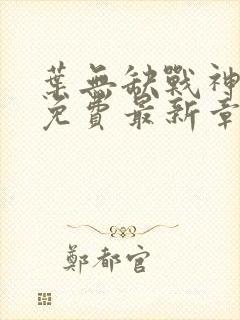 葉無缺戰神
免費最新章
鄭都官